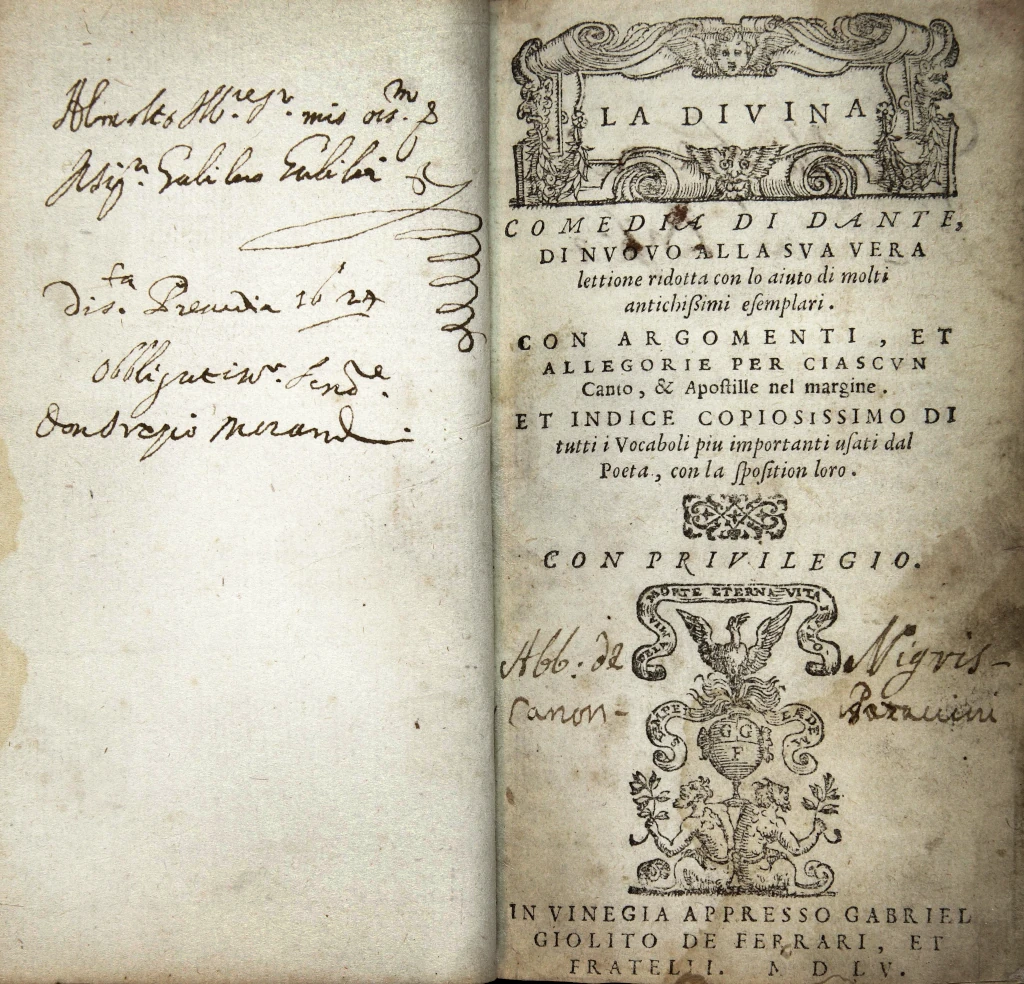 Al molto Ill.re Sr. mio oss.mo
Il Sigr. Galileo Galilei
1624
Obbligatiss.r Ser.re
Don Orazio Morandi
LA DIVINA
COMEDIA DI DANTE,
DI NVOVO ALLA SVA VERA
lettione ridotta con lo aiuto di molti
antichißimi eſemplari.
CON ARGOMENTI, ET
ALLEGORIE PER CIASCVN
Canto, & Apoſtille nel margine.
ET INDICE COPIOSISSIMO DI
tutti i Vocaboli piu importanti uſati dal
Poeta, con la ſpoſition loro.
CON PRIVILEGIO.
DE LA MIA MORTE ETERNA VITA I VIVO
Abb. de Nigris-
Canon-
SEMPER LÆDEM
GG
F
IN VINEGIA APPRESSO GABRIEL
GIOLITO DE FERRARI, ET
FRATELLI. M D LV.